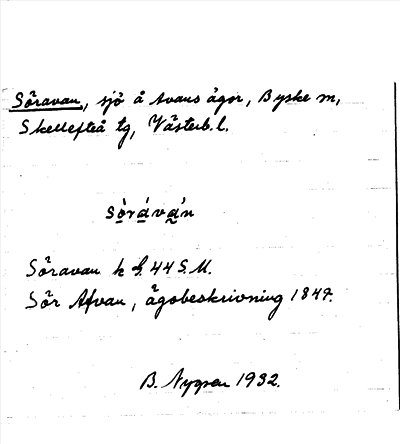 Söravan, sjö å Avans ägor, Byske sn,
Skellefteå tg, Västerb. l.
sò̱rá̱vа̱'n
Söravan k bl. 44 S.M.
Sör Afvan, ägobeskrivning 1847.
B. Nygren 1932.